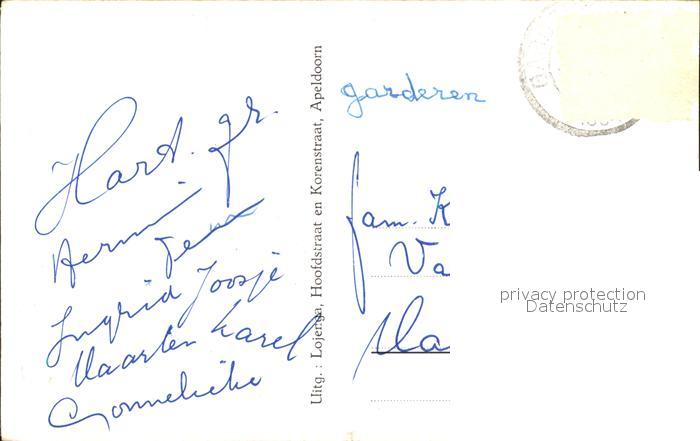 Hart. gr.
Ingrid Joosje
Maarten Karel
Uitg.: Lojenga, Hoofdstraat en Korenstraat, Apeldoorn
garderen
fam. K
Va
Ma
privacy protection
Datenschutz